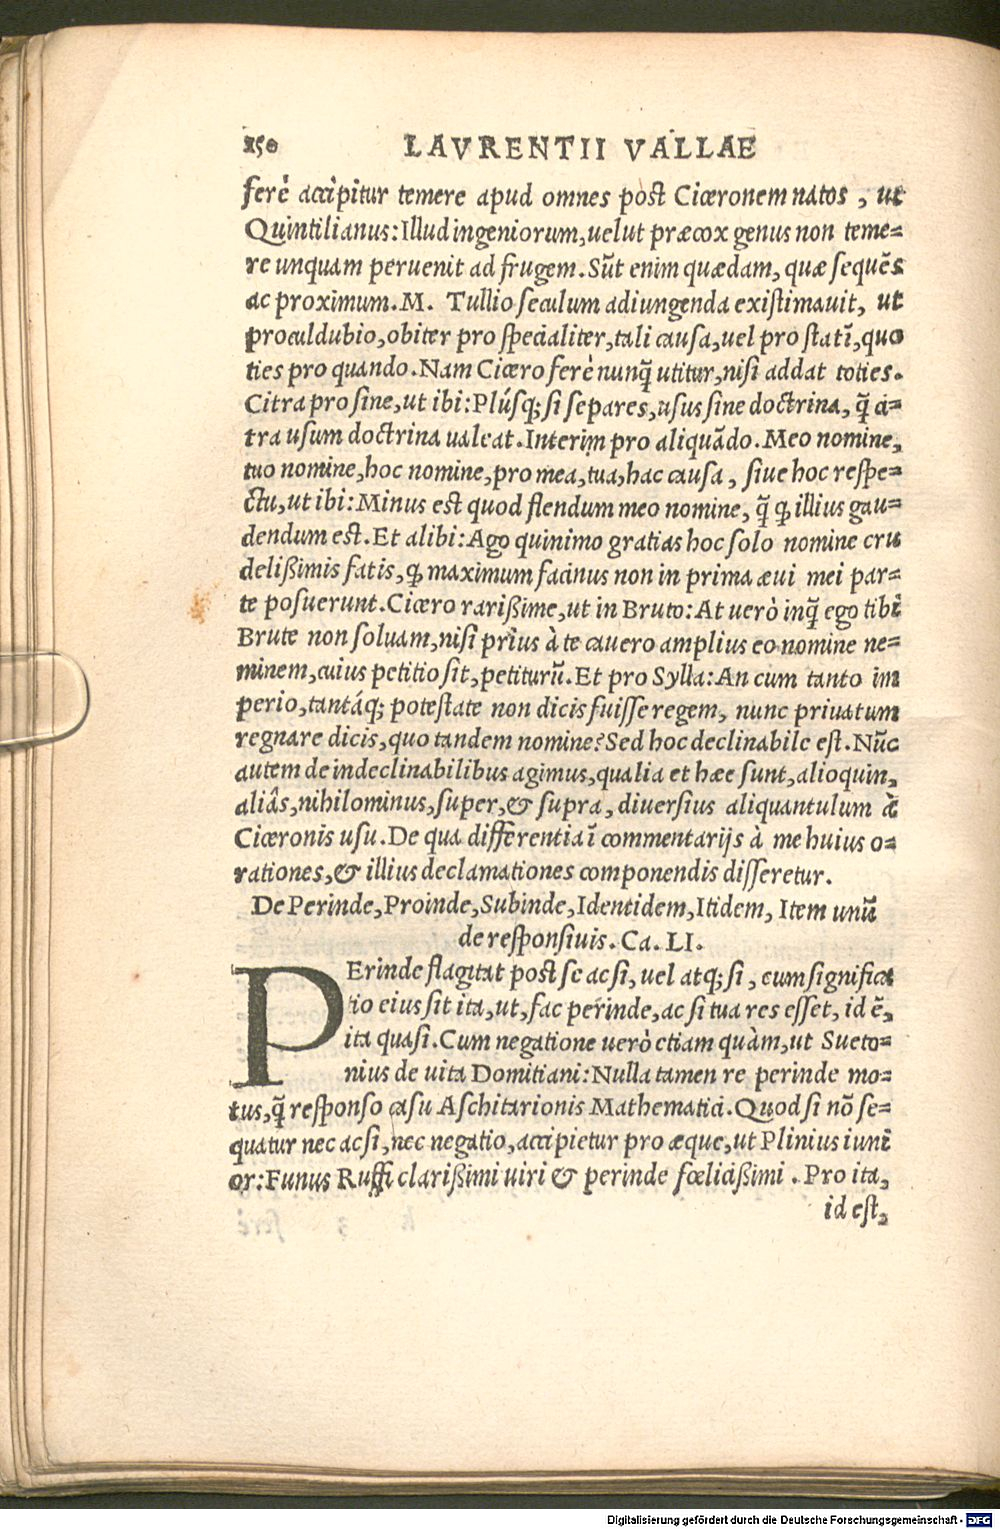 150 LAVRENTII VALLAE
ferè accipitur temere apud omnes post Ciceronem natos, ut
Quintilianus: Illud ingeniorum, uelut præcox genus non teme=
re unquam peruenit ad frugem. Sūt enim quædam, quæ sequēs
ac proximum. M. Tullio seculum adiungenda existimauit, ut
proculdubio, obiter pro specialiter, tali causa, uel pro statī, quo
ties pro quando. Nam Cicero ferè nunq̃ utitur, nisi addat toties.
Citra pro sine, ut ibi: Plúsq; si separes, usus sine doctrina, q̃ ci=
tra usum doctrina ualeat. Interim pro aliquādo. Meo nomine,
tuo nomine, hoc nomine, pro mea, tua, hac causa, siue hoc respe=
ctu, ut ibi: Minus est quod flendum meo nomine, q̃ ꝙ illius gau=
dendum est. Et alibi: Ago quinimo gratias hoc solo nomine cru
delißimis fatis, ꝙ maximum facinus non in prima æui mei par=
te posuerunt. Cicero rarißime, ut in Bruto: At uerò inq̃ ego tibi
Brute non soluam, nisi prius à te cauero amplius eo nomine ne=
minem, cuius petitio sit, petiturū. Et pro Sylla: An cum tanto im
perio, tantáq; potestate non dicis fuisse regem, nunc priuatum
regnare dicis, quo tandem nomine? Sed hoc declinabile est. Nūc
autem de indeclinabilibus agimus, qualia et hæe sunt, alioquin,
aliâs, nihilominus, super, & supra, diuersius aliquantulum à
Ciceronis usu. De qua differentia ī commentarijs à me huius o=
rationes, & illius declamationes componendis disseretur.
De Perinde, Proinde, Subinde, Identidem, Itidem, Item unū
de responsiuis. Ca. LI.
PErinde flagitat post se ac si, uel atq; si, cum significa
tio eius sit ita, ut, fac perinde, ac si tua res esset, id ē,
ita quasi. Cum negatione uerò etiam quàm, ut Sueto=
nius de uita Domitiani: Nulla tamen re perinde mo=
tus, q̃ responso casu Aschitarionis Mathematici. Quod si nō se=
quatur nec ac si, nec negatio, accipietur pro æque, ut Plinius iuni
or: Funus Ruffi clarißimi uiri & perinde fœlicißimi. Pro ita,
id est,
Digitalisierung gefördert durch die Deutsche Forschungsgemeinschaft - DFG